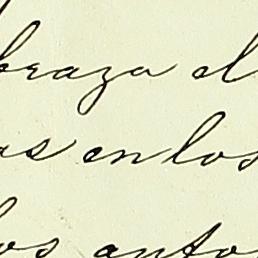 braza el
as en los
los anto